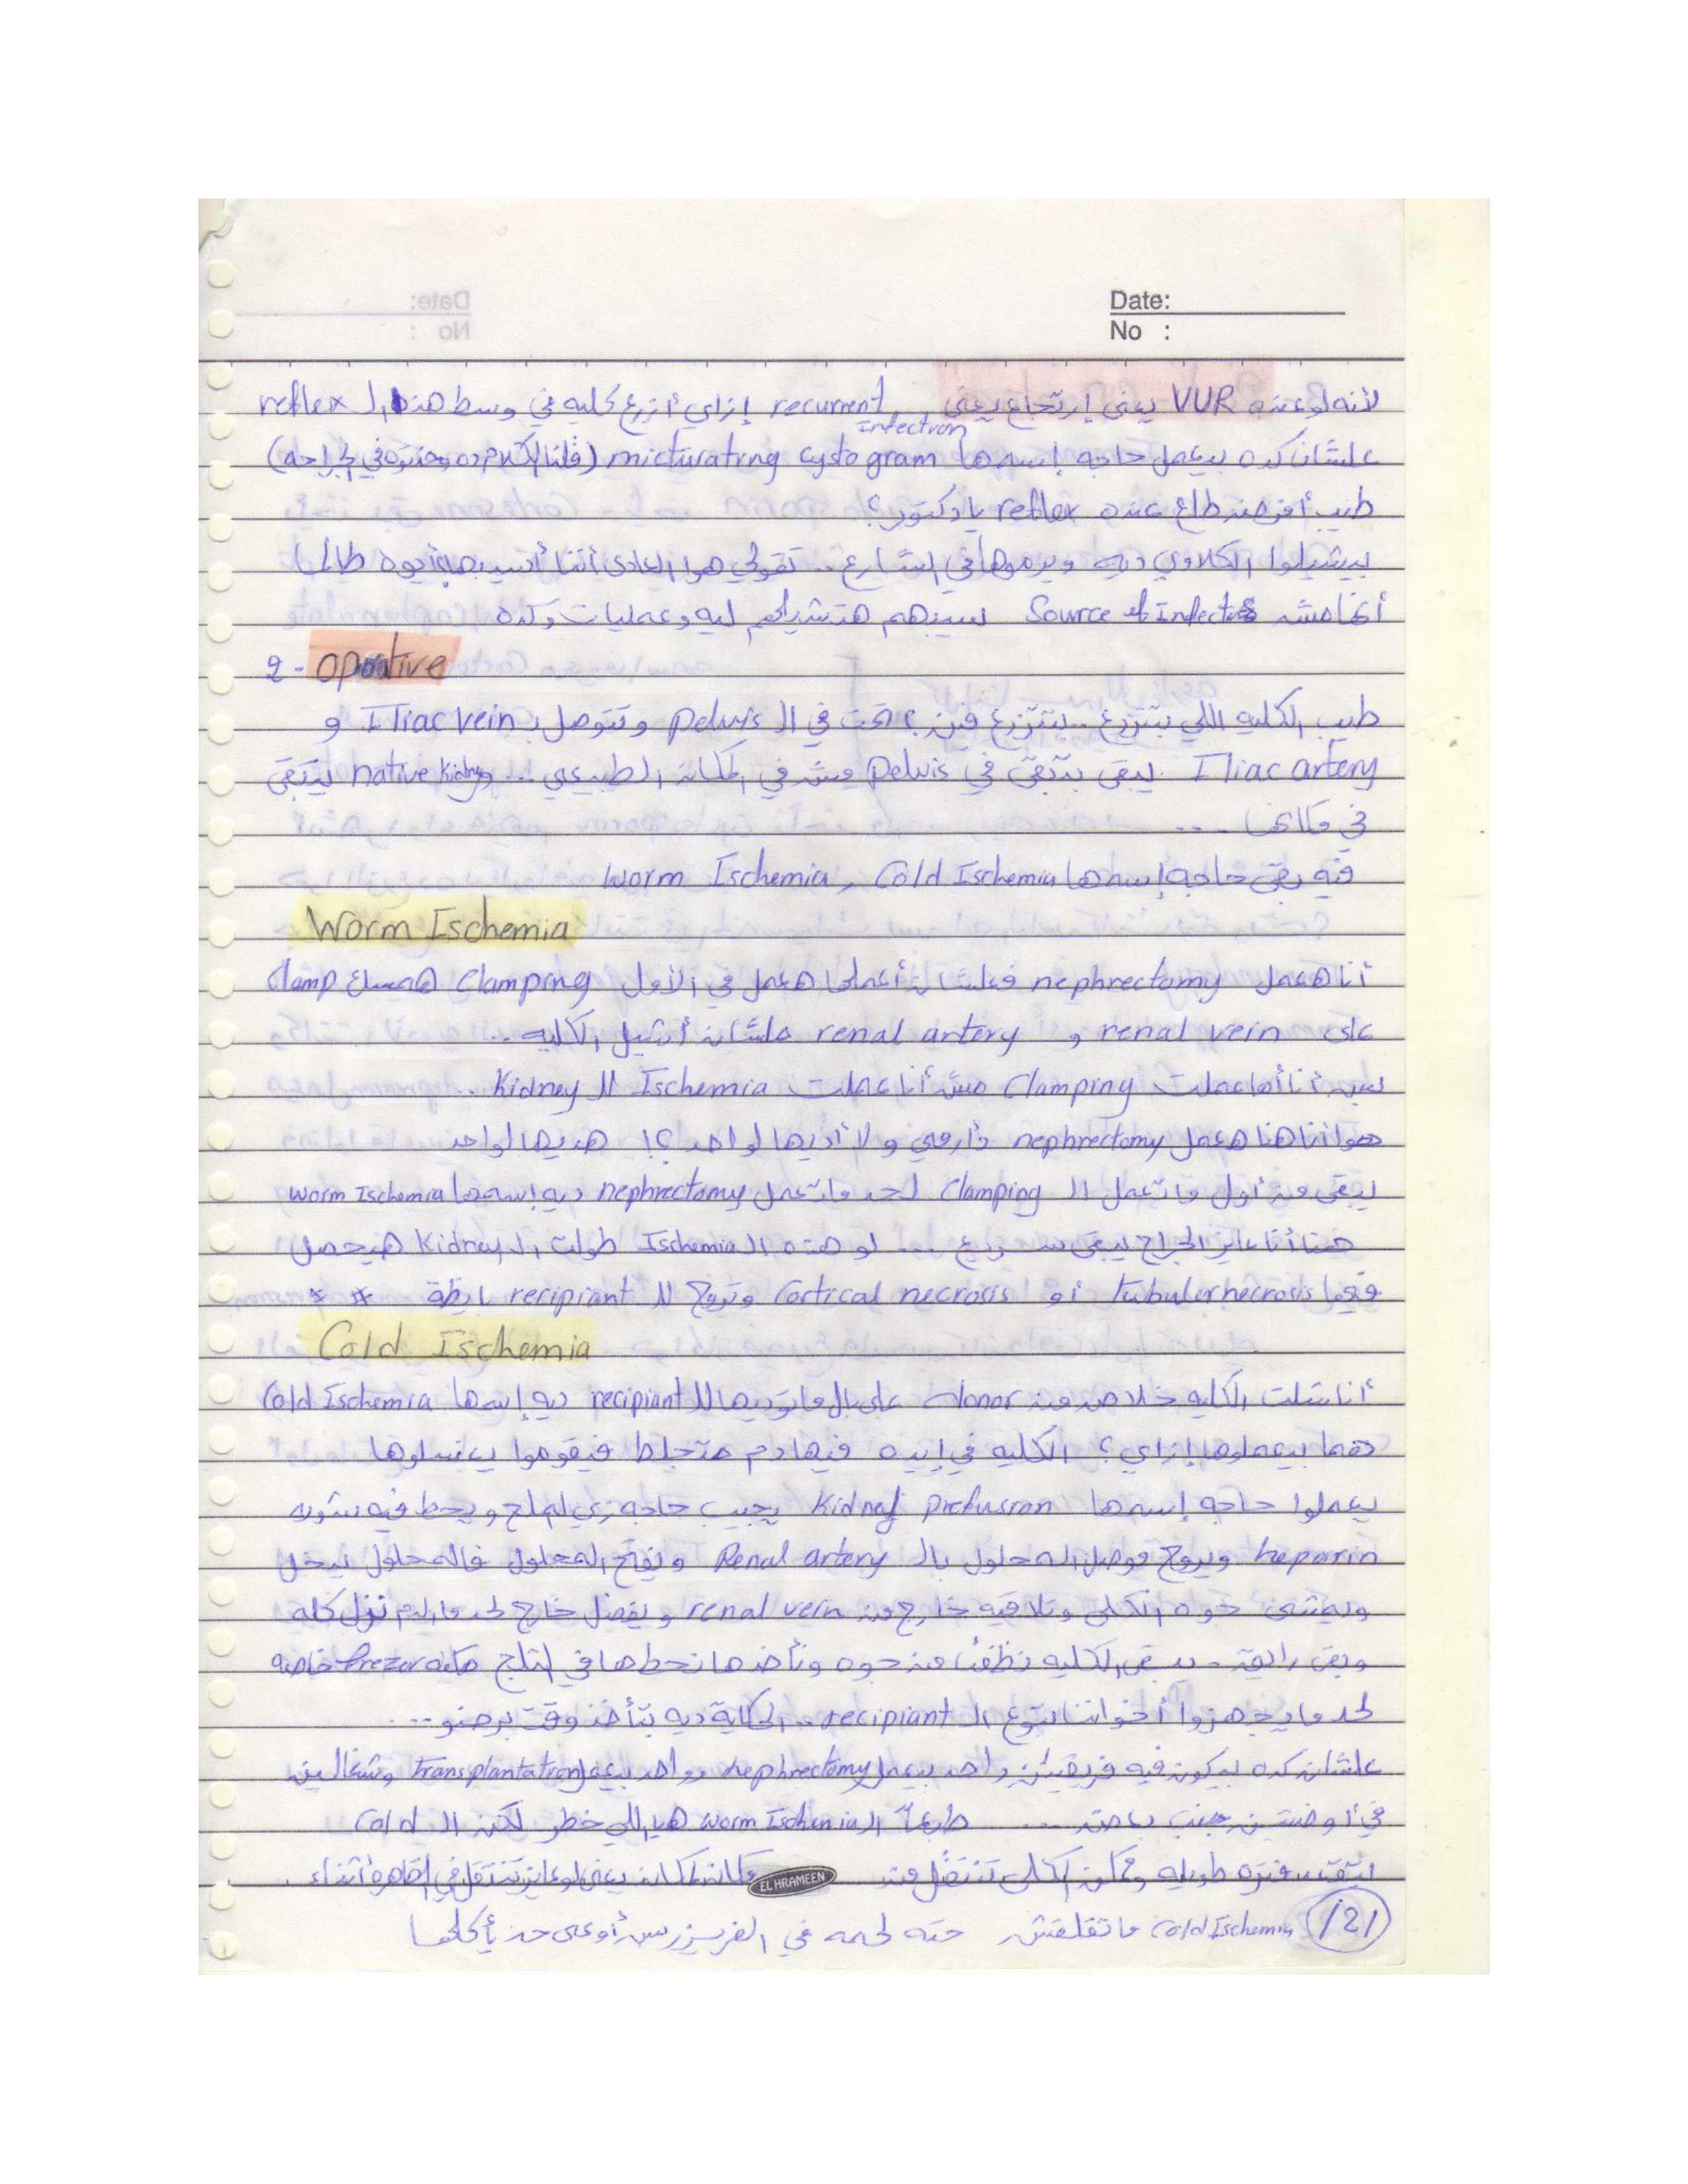 Date:
No :
لأنه لو عنده VUR يعني إرتجاع يعني recurrent Infection إزاي أزرع كليه في وسط هذه الـ reflex
علشان كده بيعمل حاجه إسمها micturating cystogram (قلنا الكلام ده وخدتوه في الجراحه)
طيب أفرض طلع عنده reflex يا دكتور؟
بيشيلوا الكلاوي ديه ويرموها في الشارع .. تقولي هوا العادي أننا أنسيبها أيوه طالما
أنها مش Source of Infection لسيبهم هتشيلهم ليه وعمليات وكده
2 - oprative
طيب الكليه اللي بتتزرع .. بتتزرع فين؟ تحت في الـ pelvis وتتوصل بـ Iliac vein و
Iliac artery يبقى بتبقى في pelvis مش في المكان الطبيعي ... و native kidney بتبقى
في مكانها ...
فيه بقى حاجه إسمها worm Ischemia , Cold Ischemia
Worm Ischemia
أنا هعمل nephrectomy فعلشان أعملها هعمل في الأول Clamping همسك Clamp
على renal vein و renal artery علشان أشيل الكليه ..
طيب أنا أما عملت Clamping مش أنا عملت Ischemia للـ Kidney ..
هوا أنا هنا هعمل nephrectomy وأرمي ولا أديها لواحد؟! هديها لواحد
يبقى من أول ما تعمل الـ Clamping لحد ما تعمل nephrectomy ديه إسمها worm Ischemia
هنا أنا عايز الجراح يبقى سريع ... لو هذه الـ Ischemia طولت الـ Kidney هيحصل
فيها tubuler necrosis أو Cortical necrosis وتروح للـ recipiant بايظة * *
Cold Ischemia
أنا شلت الكليه خلاص من donor على بال ما توديها للـ recipiant ديه إسمها Cold Ischemia
هما بيعملوها إزاي؟ الكليه في إيده فيها دم متجلط فيقوموا يغسلوها
يعملوا حاجه إسمها Kidney Prefusion يجيب حاجه زي الملح ويحط فيه شويه
heparin ويروح موصل المحلول بالـ Renal artery ويفتح المحلول فالمحلول يدخل
ويمشي جوه الكلى وتلاقيه خارج من renal vein ويفضل خارج لحد ما الدم نزل كله
وبقى رايقه .. يبقى الكليه نظفت من جوه ونأخدها نحطها في التلج مكنه Frezer خاصه
لحد ما يجهزوا أخواننا بتوع الـ recipiant .. الحكاية ديه بتأخذ وقت برضو ...
علشان كده بيكون فيه فريقين واحد بيعمل nephrectomy وواحد بيعمل Transplantation وشغالين
في أوضتين جنب بعض .... طبعاً الـ worm Ischemia هيا اللي خطر لكن الـ Cold
تتقعد فتره طويله وممكن الكلى تتنقل من مكان لمكان يعني لو عايز تتنقل في القاهرة أثناء
EL HRAMEEN
Cold Ischemia ماتقلقش حته لحمه في الفريزر بس أوعى حد يأكلها
121